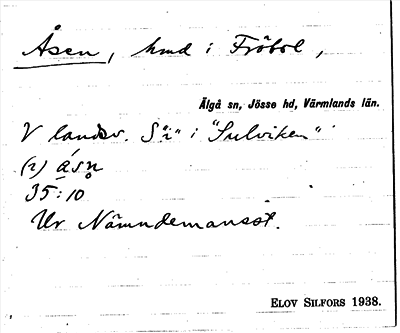 Åsen, hmd i Fröbol,
Älgå sn, Jösse hd, Värmlands län.
V landsv. S "i" i "Sulviken"
(2) åsn̥
35:10
Ur Nämndemansst.
ELOV SILFORS 1938.